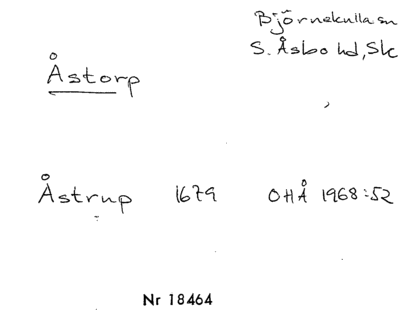 Björnekulla sn
S. Åsbo hd, Sk
Åstorp
Åstrup 1679 OHÅ 1968:52
Nr 18464